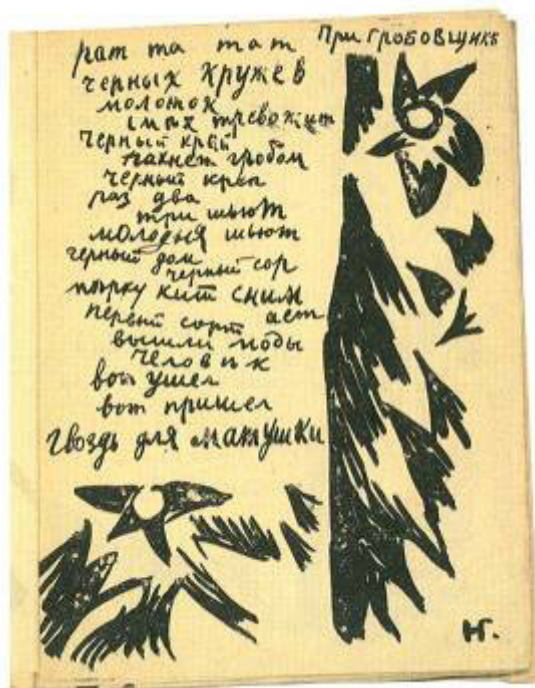 При гробовщикѣ
рат та тат
черных кружев
молоток
смѣх тревожит
черный креп
пахнет гробом
черный креп
раз два
три шьют
молодыя шьют
черный дом
черный сор
сним
аст
первый сорт
вышли моды
человѣк
вот ушел
вот пришел
гвоздь для матушки
НГ.